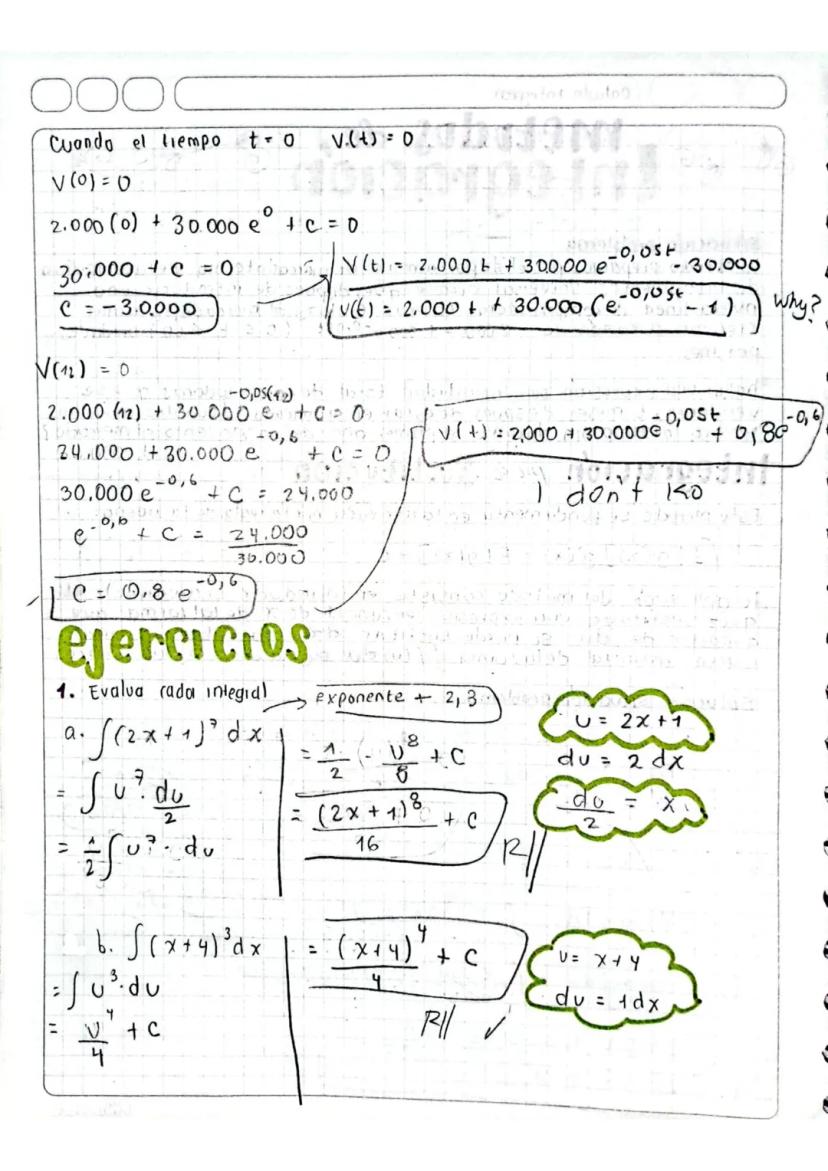 Cuando el tiempo t = 0 V(t) = 0
V(0) = 0
2.000 (0) + 30.000 e⁰ + c = 0
30.000 + C = 0
C = -30.000
V(t) = 2.000 t + 30.000 e^-0,05t - 30.000
V(t) = 2.000 t + 30.000 (e^-0,05t - 1)
Why?
V(12) = 0
2.000 (12) + 30.000 e^-0,05(12) + C = 0
24.000 + 30.000 e^-0,6 + C = 0
30.000 e^-0,6 + C = 24.000
e^-0,6 + C = 24.000/30.000
C = 0.8 e^-0,6
V(t) = 2,000 + 30.000e^-0,05t + 0,8e^-0,6
I don't
ejercicios
1. Evalua cada integral
exponente + 2,3
a. ∫(2x + 1)⁷ dx
= ∫ u⁷ · du/2
= 1/2 ∫ u⁷ · du
= 1/2 (- u⁸/8 + C
= (2x + 1)⁸/16 + C
R//
u = 2x + 1
du = 2 dx
du/2 = x
b. ∫(x+4)³dx
= ∫ u³·du
= u⁴/4 + C
= (x+4)⁴/4 + C
R// ✓
u = x+4
du = 1dx